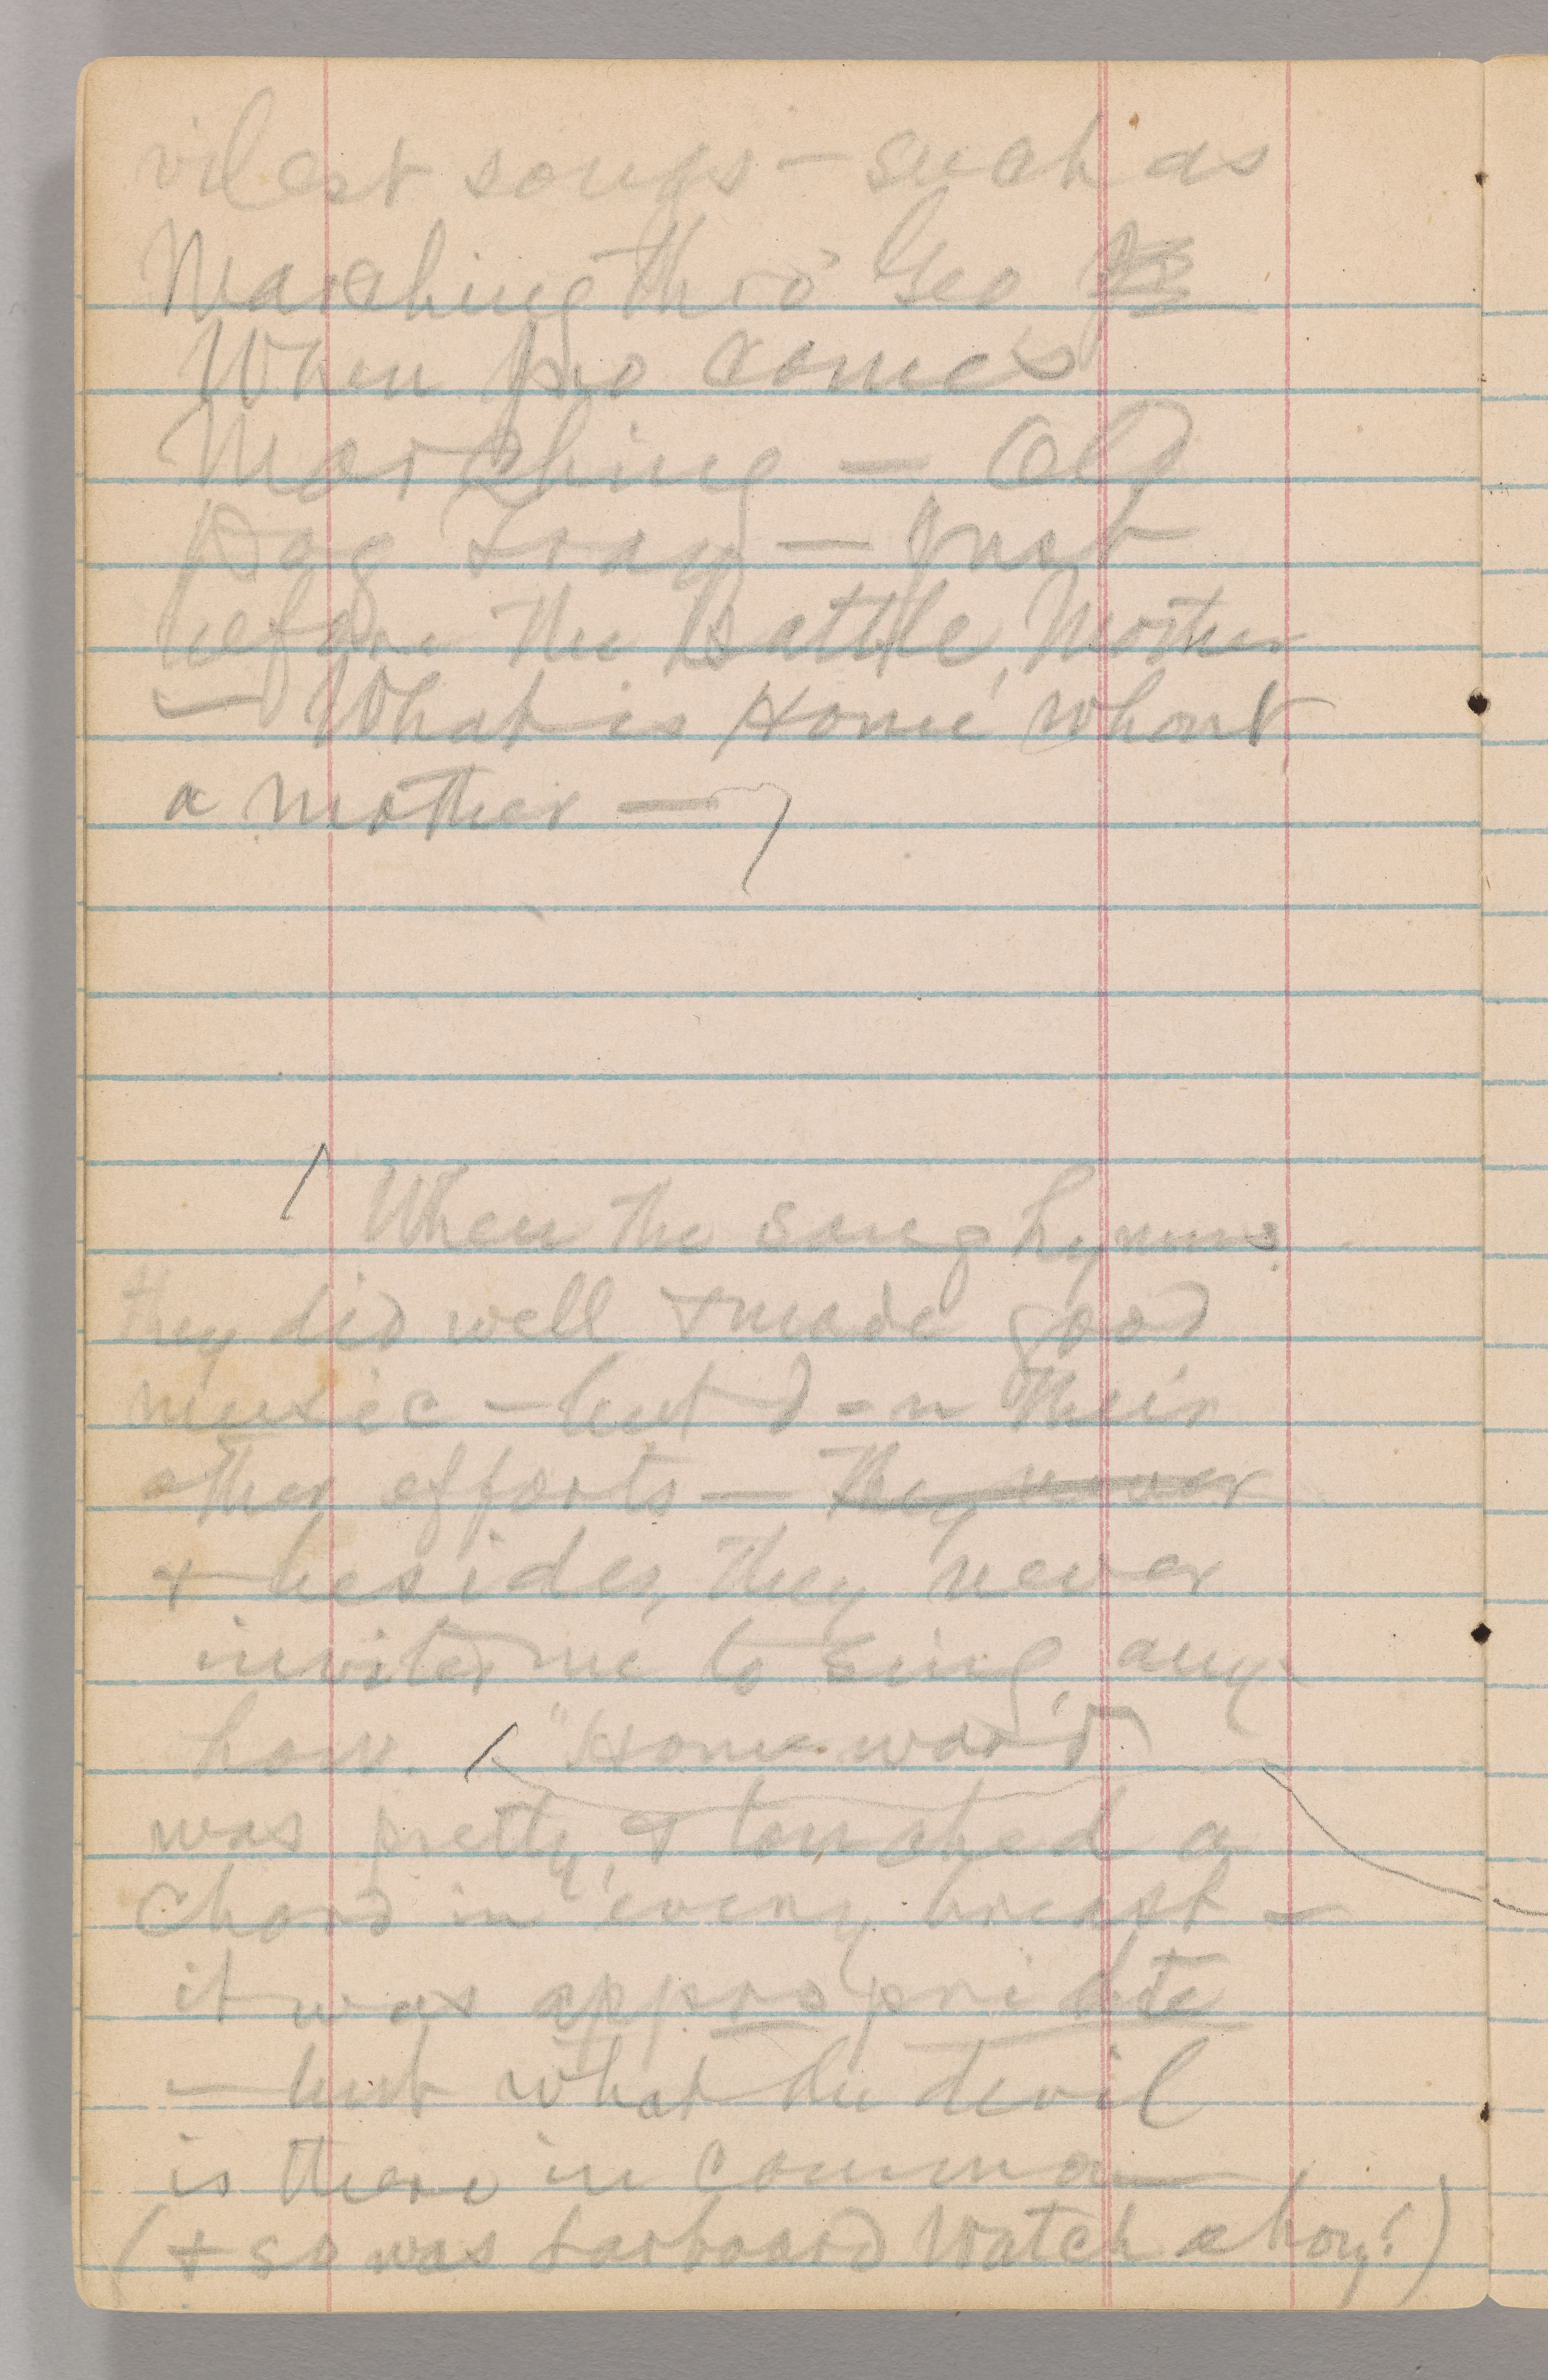 vilest songs — such as
Marching thro' Geo
When Jno comes
Marching — Old
Dog Tray — Just
before the Battle, Mother
— What is Home whout
a mother —
When the sang hymns
they did well & made good
music — but d-n their
other efforts — they never
& besides, they never
invited me to sing, any-
how. "Homeward"
was pretty, & touched a
chord in every breast —
it was appropriate
— but what the devil
is there in common
(& so was Larboard Watch ahoy!)